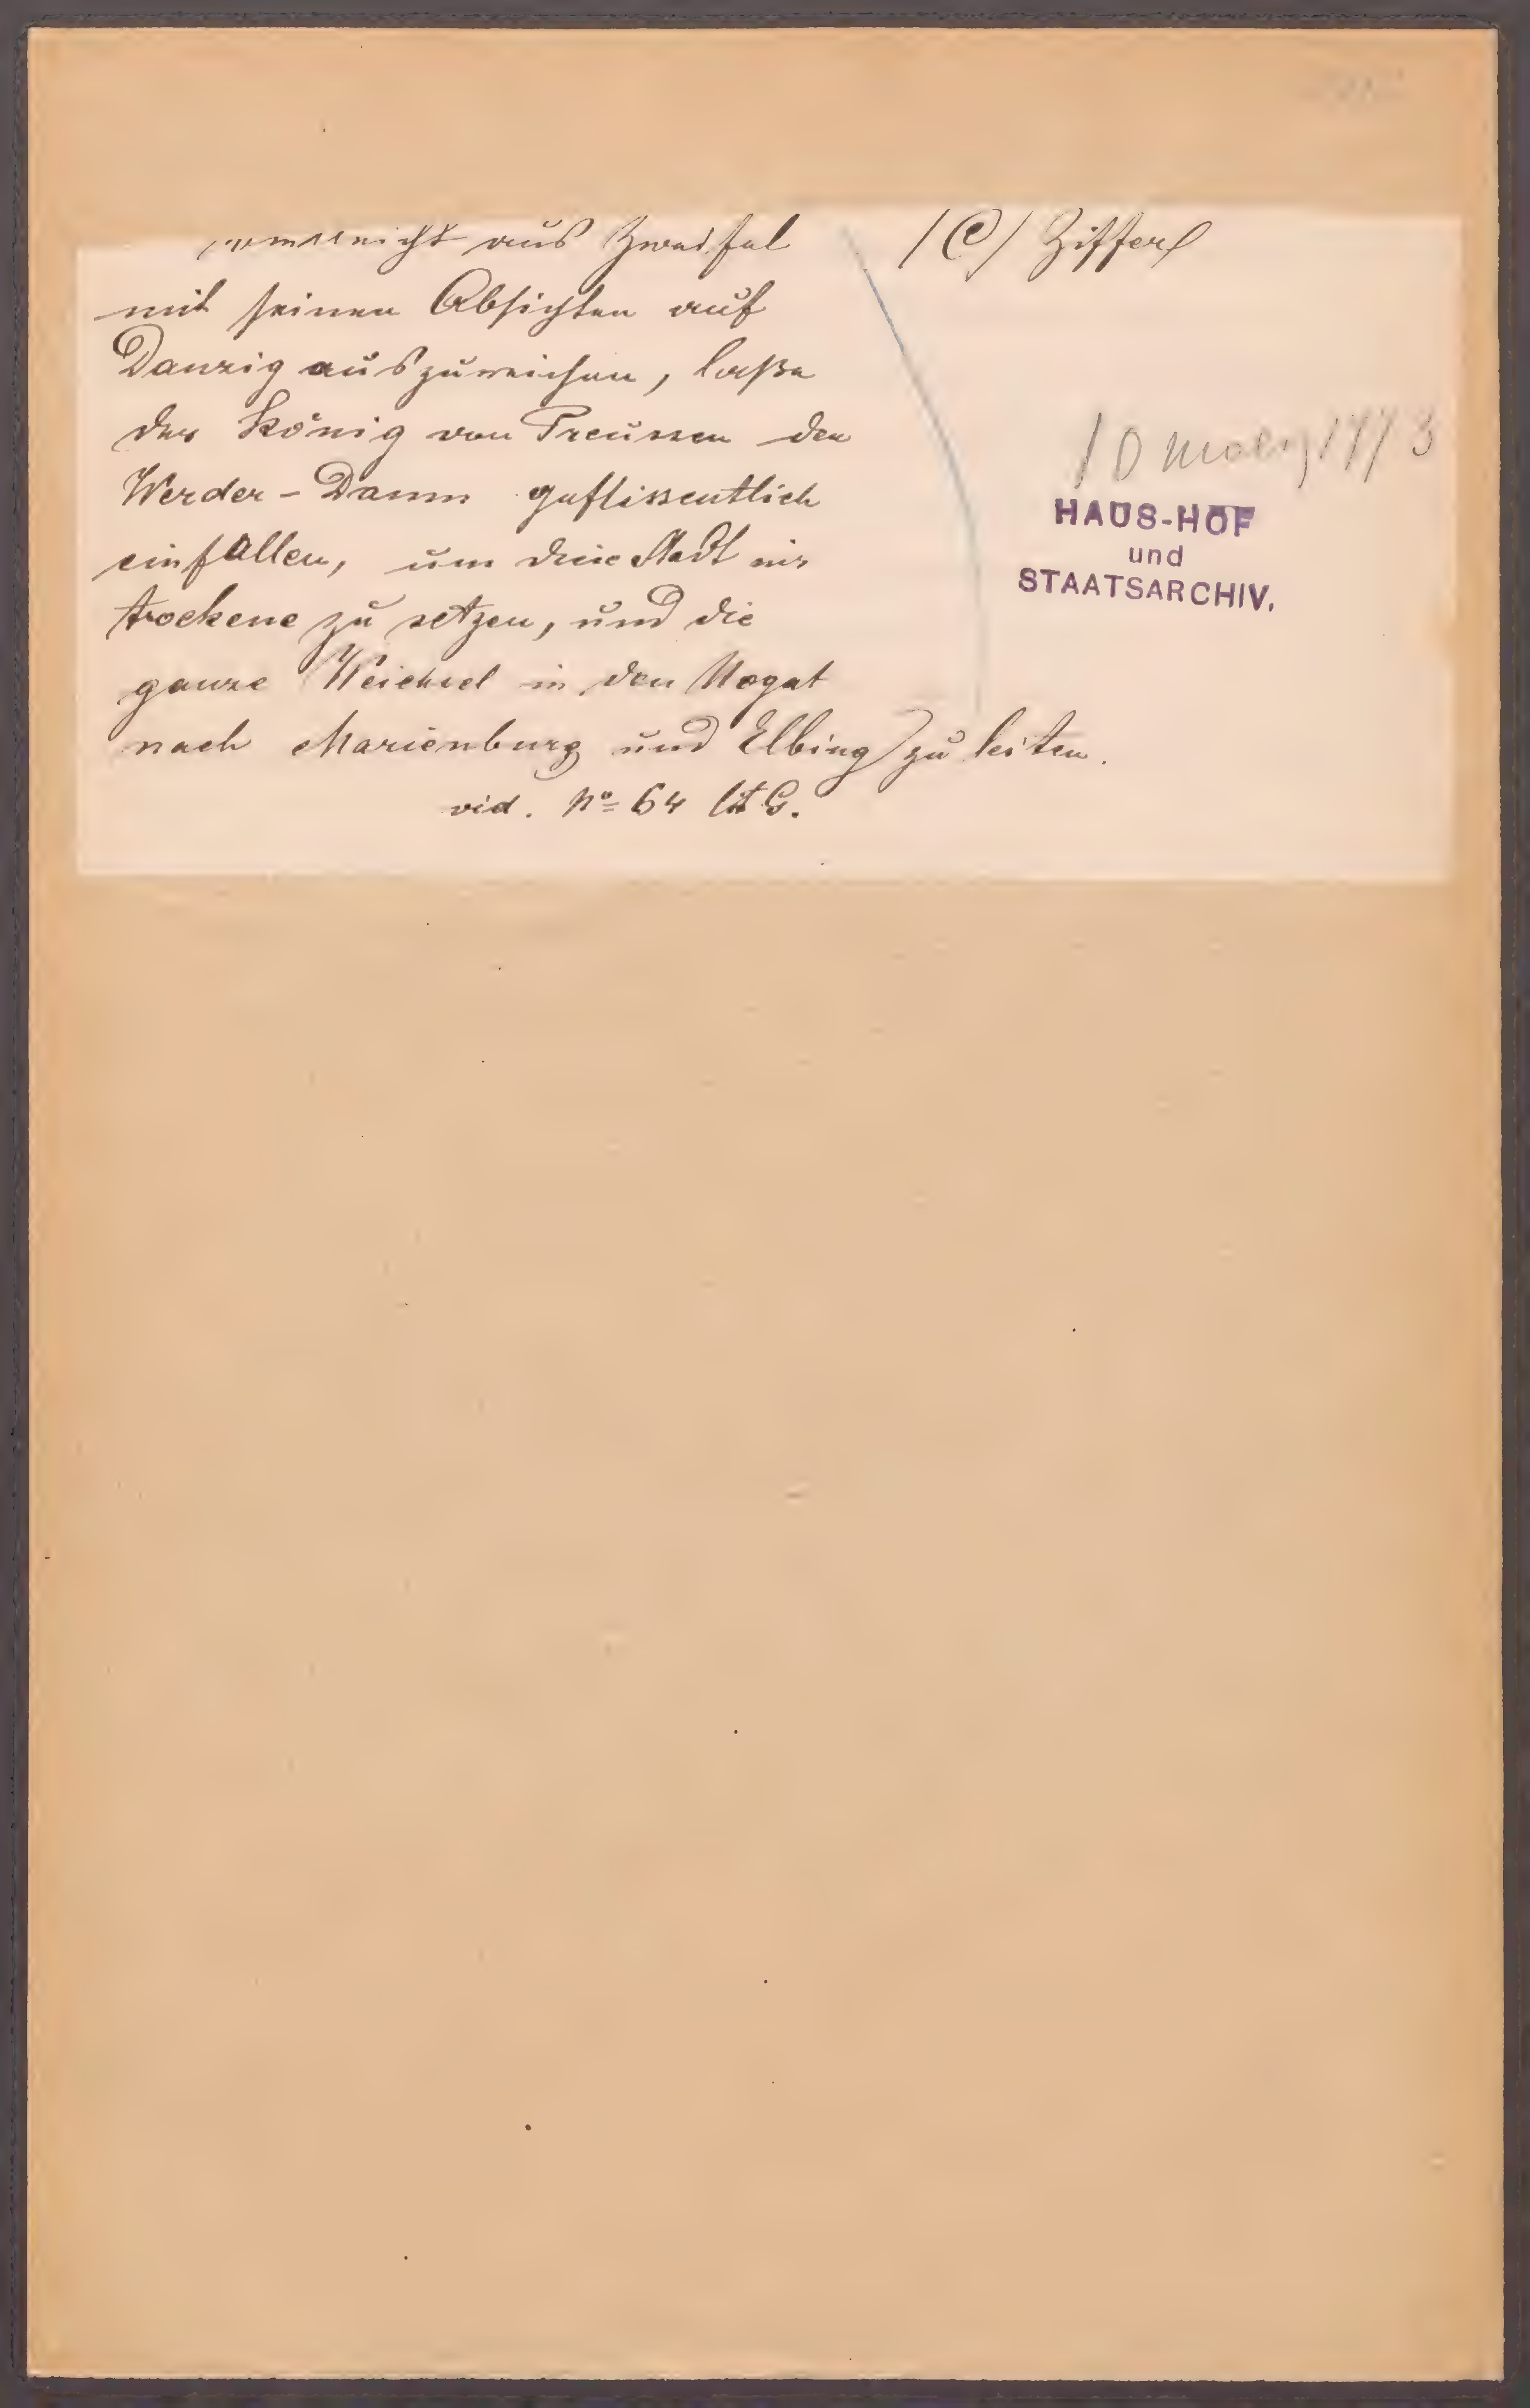 aus Zweifel
/C/ Ziffer
mit seinen Absichten auf
Danzig auszureichen, laße
der König von Preussen den
Werder-Damm geflissentlich
einfallen, um die Stadt ins
trockene zu setzen, und die
ganze Weichsel in den Nogat
nach Marienburg und Elbing zu leiten.
vid. No 64 lit G.
10 März 1773
HAUS-HOF
und
STAATSARCHIV.